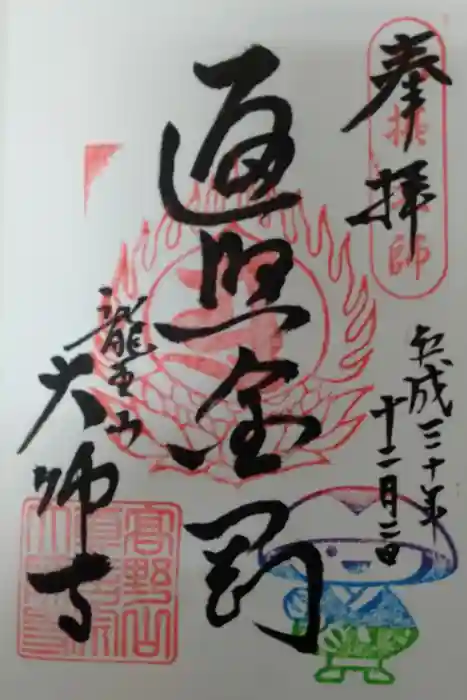 奉拝
平成三十年
十二月二日
遍照金剛
龍王山
大師寺
高野山